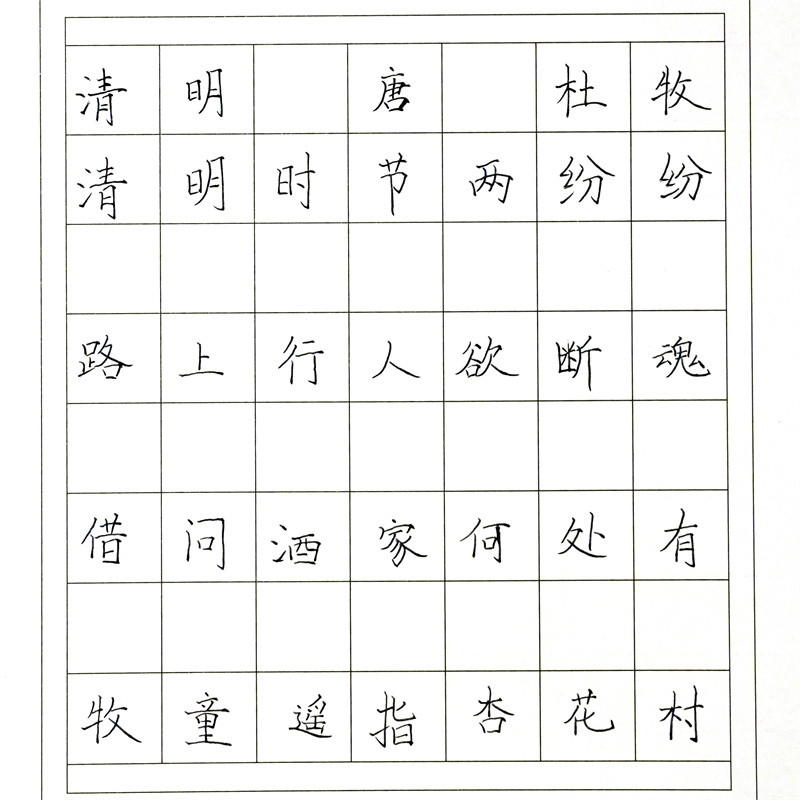 清明 唐 杜牧
清明时节两纷纷
路上行人欲断魂
借问酒家何处有
牧童遥指杏花村